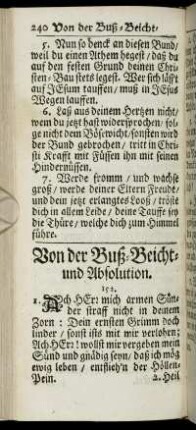 240 Von der Buß-Beicht-
5. Nun so denck an diesen Bund/
weil du einen Athem hegest/ daß du
auf den festen Grund deinen Chri-
sten-Bau stets legest. Wer sich läßt
auf JEsum tauffen/ muß in JEsus
Wegen lauffen.
6. Laß aus deinem Hertzen nicht/
wenn du jetzt hast widersprochen: fol-
ge nicht dem Bösewicht/ sonsten wird
der Bund gebrochen/ tritt in Chri-
sti Krafft mit Füssen ihn mit seinen
Hindernüssen.
7. Werde fromm/ und wachse
groß/ werde deiner Eltern Freude/
und dein jetzt erlangtes Looß/ tröste
dich in allem Leide/ deine Tauffe sey
die Thüre/ welche dich zum Himmel
führe.
Von der Buß-Beicht-
und Absolution.
151.
1. Ach HEr: mich armen Sün-
der straff nicht in deinem
Zorn: Dein ernsten Grimm doch
linder/ sonst ists mit wir verlohrn/
Ach HEr: wollst mir vergeben mein
Sünd und gnädig seyn/ daß ich mög
ewig leben/ entflieh'n der Höllen-
Pein.
2. Heil